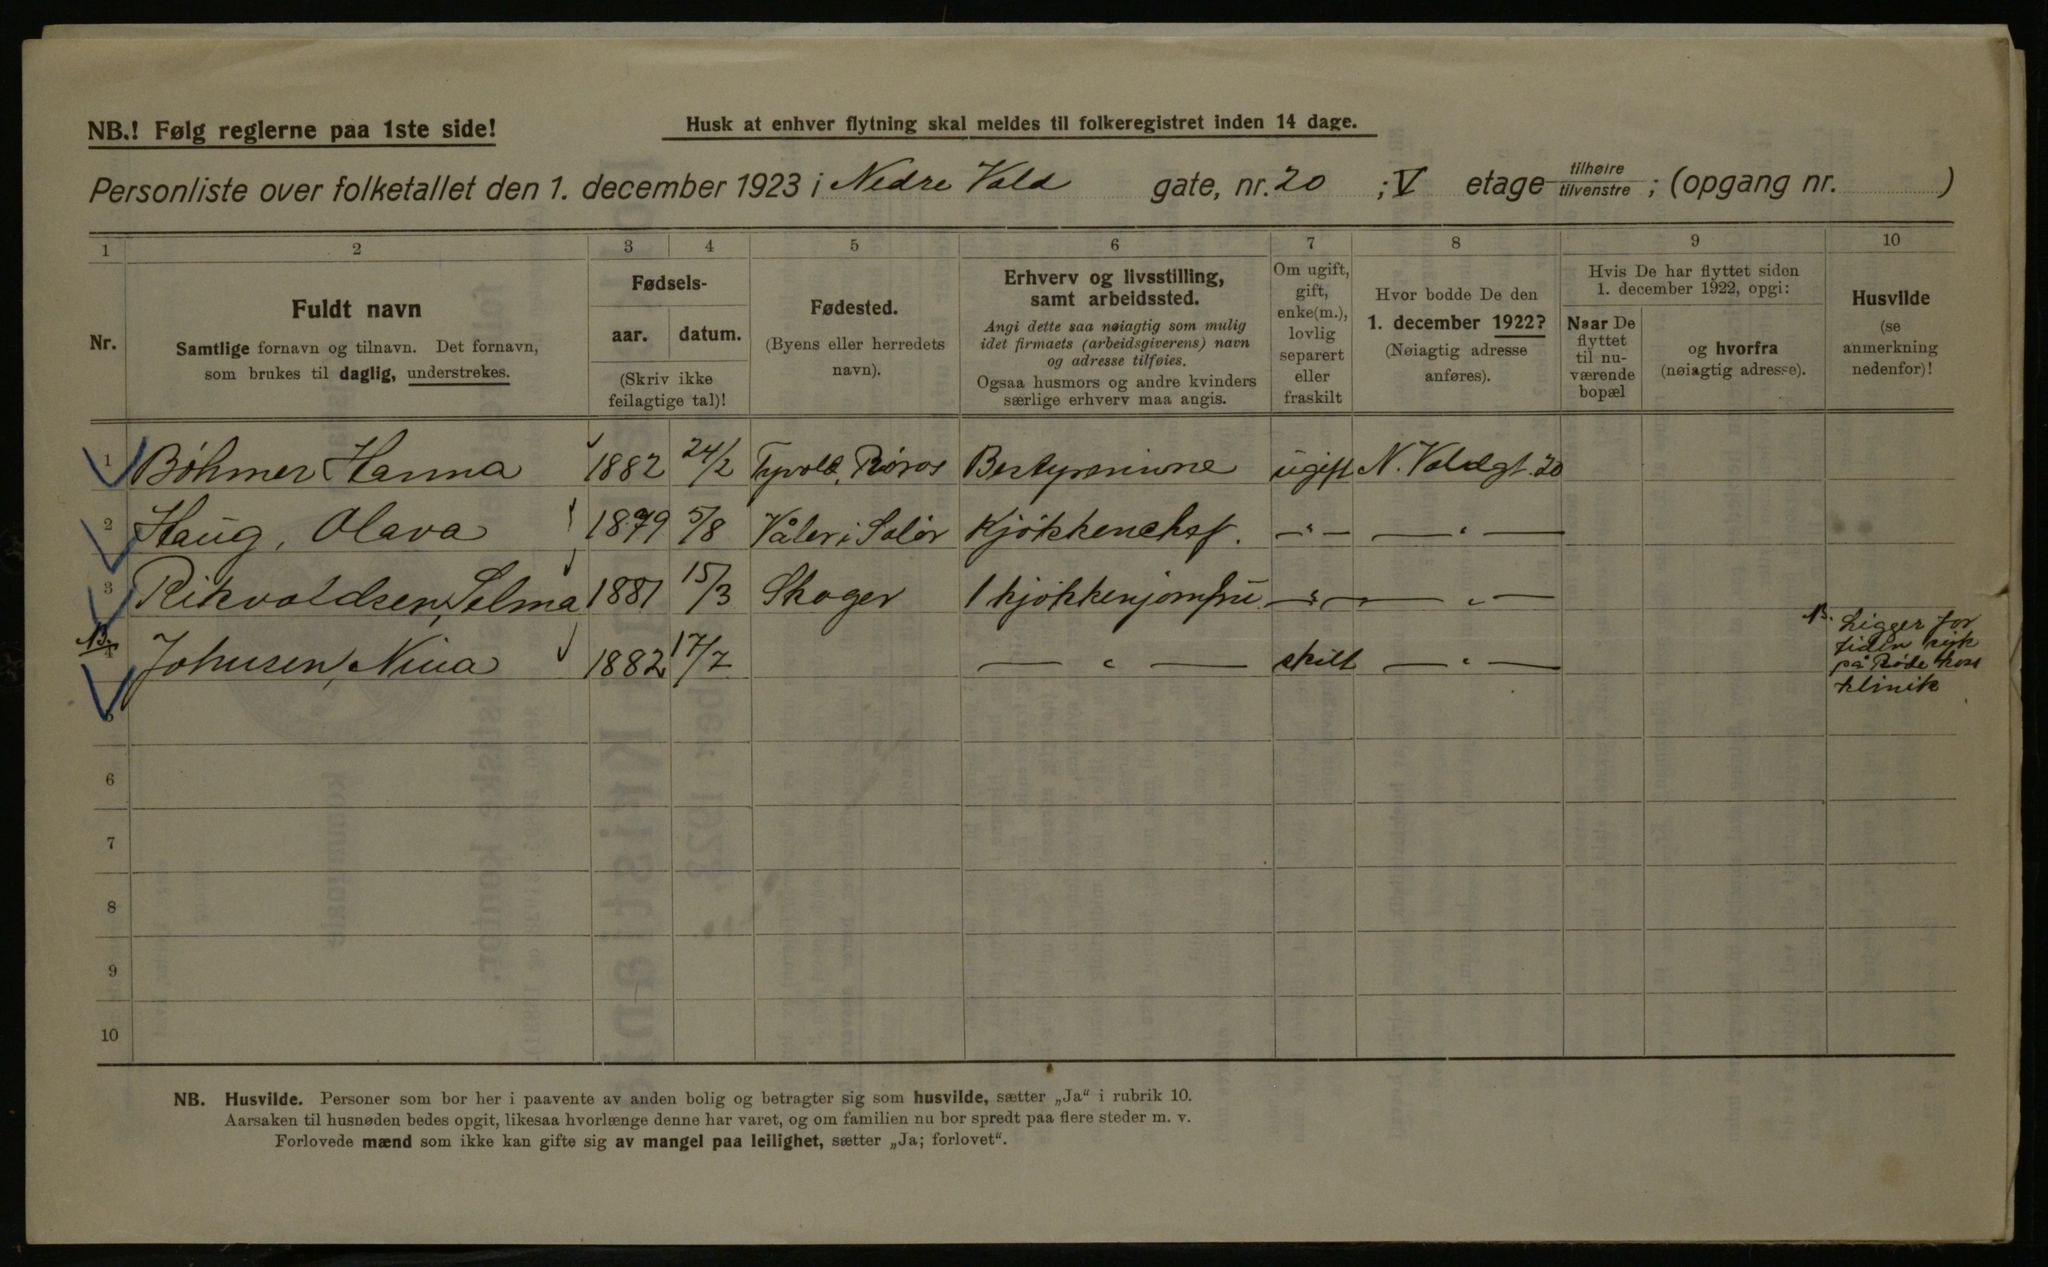 NB.! Følg reglerne paa 1ste side!
Husk at enhver flytning skal meldes til folkeregistret inden 14 dage.
Personliste over folketallet den 1. december 1923 i Nedre Vold gate, nr. 20 ; V etage tilhøire tilvenstre ; (opgang nr. )
1 2 3 4 5 6 7 8 9 10
Nr.
Fuldt navn
Samtlige fornavn og tilnavn. Det fornavn,
som brukes til daglig, understrekes.
Fødsels-
aar. datum.
(Skriv ikke
feilagtige tal)!
Fødested.
(Byens eller herredets
navn).
Erhverv og livsstilling,
samt arbeidssted.
Angi dette saa nøiagtig som mulig
idet firmaets (arbeidsgiverens) navn
og adresse tilføies.
Ogsaa husmors og andre kvinders
særlige erhverv maa angis.
Om ugift,
gift,
enke(m.),
lovlig
separert
eller
fraskilt
Hvor bodde De den
1. december 1922?
(Nøiagtig adresse
anføres).
Hvis De har flyttet siden
1. december 1922, opgi:
Naar De
flyttet
til nu-
værende
bopæl
og hvorfra
(nøiagtig adresse).
Husvilde
(se
anmerkning
nedenfor)!
1 Bøhmer Hanna 1882 24/2 Tyvold, Røros Bestyrerinne ugift N. Voldgt. 20
2 Haug, Olava 1879 5/8 Våler i Solør Kjøkkenchef. — " — — " —
3 Rikvoldsen, Selma 1881 15/3 Skoger 1 kjøkkenjomfru — " — — " —
NB. 4 Johnsen, Nina 1882 17/7 — " — skilt — " —
NB. Ligger for
tiden syk
på Røde Kors
klinik
5
6
7
8
9
10
NB. Husvilde. Personer som bor her i paavente av anden bolig og betragter sig som husvilde, sætter „Ja“ i rubrik 10.
Aarsaken til husnøden bedes opgit, likesaa hvorlænge denne har varet, og om familien nu bor spredt paa flere steder m. v.
Forlovede mænd som ikke kan gifte sig av mangel paa leilighet, sætter „Ja; forlovet“.